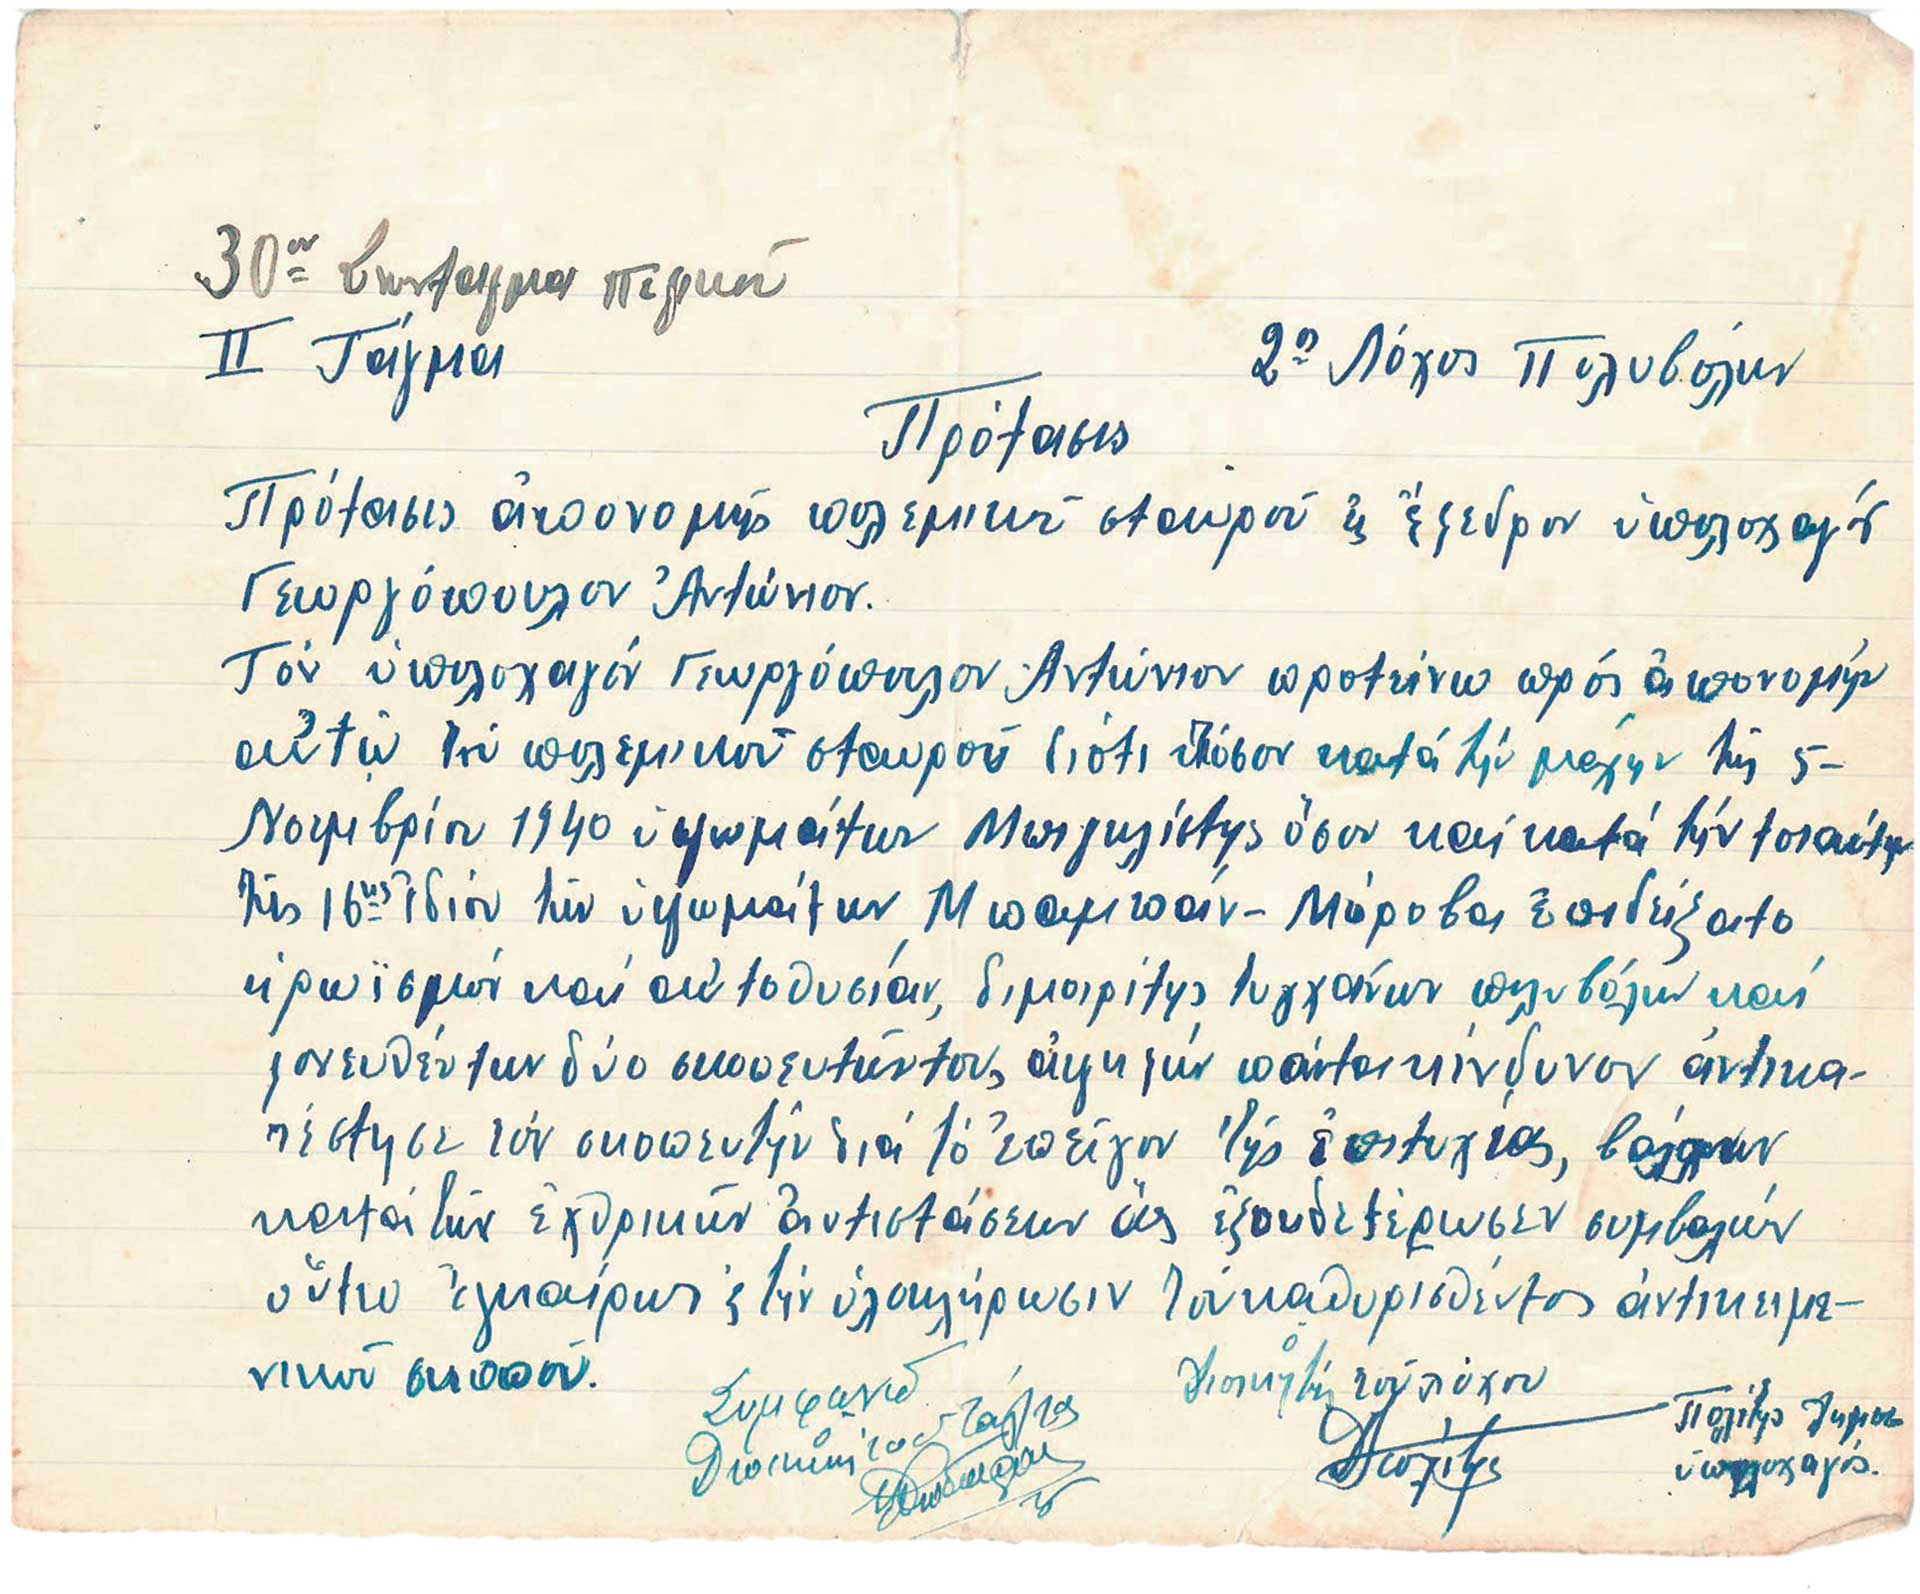 30ον Σύνταγμα πεζικοῦ
ΙΙ Τάγμα
2ος Λόχος Πολυβόλων
Πρότασις
Πρότασις ἀπονομῆς πολεμικοῦ σταυροῦ εἰς ἔφεδρον ὑπολοχαγόν
Γεωργόπουλον Ἀντώνιον.
Τόν ὑπολοχαγόν Γεωργόπουλον Ἀντώνιον προτείνω πρός ἀπονομήν
αὐτῷ τοῦ πολεμικοῦ σταυροῦ διότι τόσον κατά τήν μάχην τῆς 5-
Νοεμβρίου 1940 ὑψωμάτων Μπιγλίστης ὅσον καί κατά τήν τοιαύτην
τῆς 16ης ἰδίου τῶν ὑψωμάτων Μπαμπάν - Μόροβα ἐπιδείξατο
ἡρωϊσμόν καί αὐτοθυσίαν, διμοιρίτης τυγχάνων πολυβόλων καί
φονευθέντων δύο σκοπευτῶν τους, ἀψηφῶν πάντα κίνδυνον ἀντικα-
τέστησε τόν σκοπευτήν διά τό ἐπεῖγον τῆς ἐπιτυχίας, βάλλων
κατά τῶν ἐχθρικῶν ἀντιστάσεων ἅς ἐξουδετέρωσεν συμβαλών
οὕτω ἐγκαίρως εἰς τήν ὁλοκλήρωσιν τοῦ καθορισθέντος ἀντικειμε-
νικοῦ σκοποῦ.
Συμφωνῶ
Διοικητής τοῦ Τάγματος
Ὁ Διοικητής τοῦ Λόχου
Πολίτης
ὑπολοχαγός.